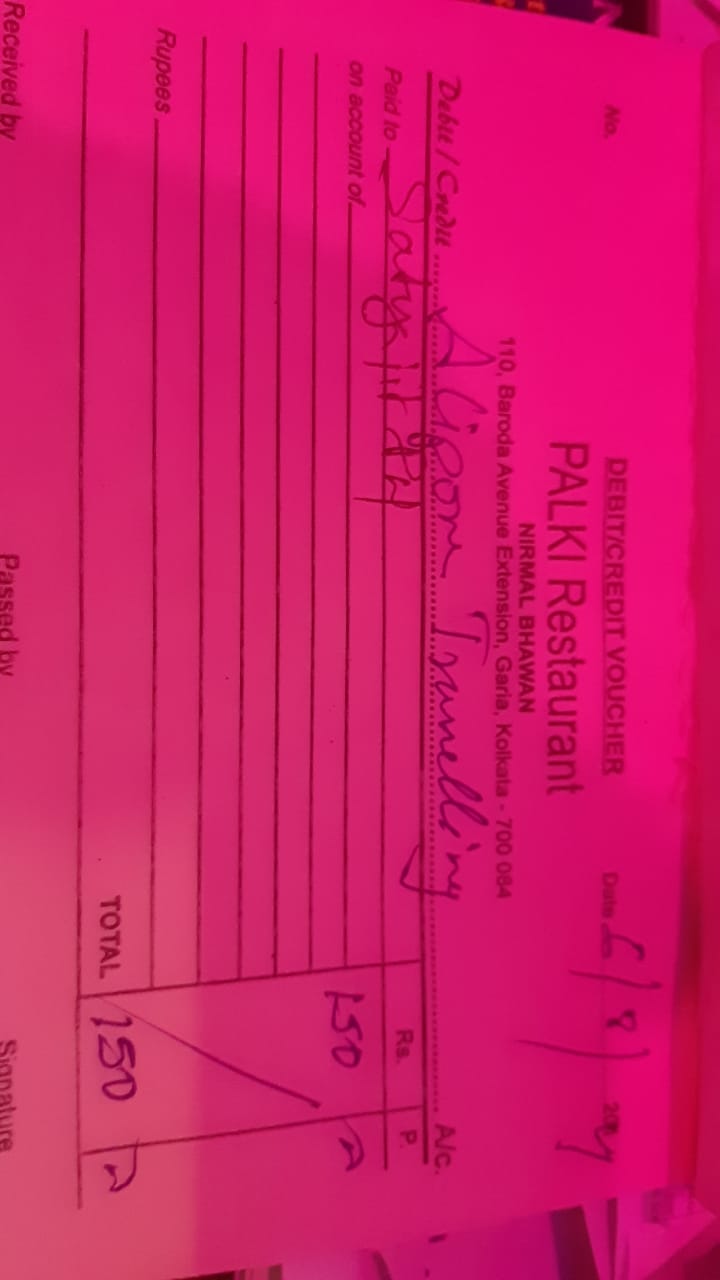 DEBIT/CREDIT VOUCHER
No.
PALKI Restaurant
Date 8
NIRMAL BHAWAN
110, Baroda Avenue Extension, Garia, Kolkata - 700 084
Debit / Credit Travelling A/c.
Paid to Satyajit Rs. P.
on account of 150
Rupees
TOTAL 150
Received by Passed by Signature